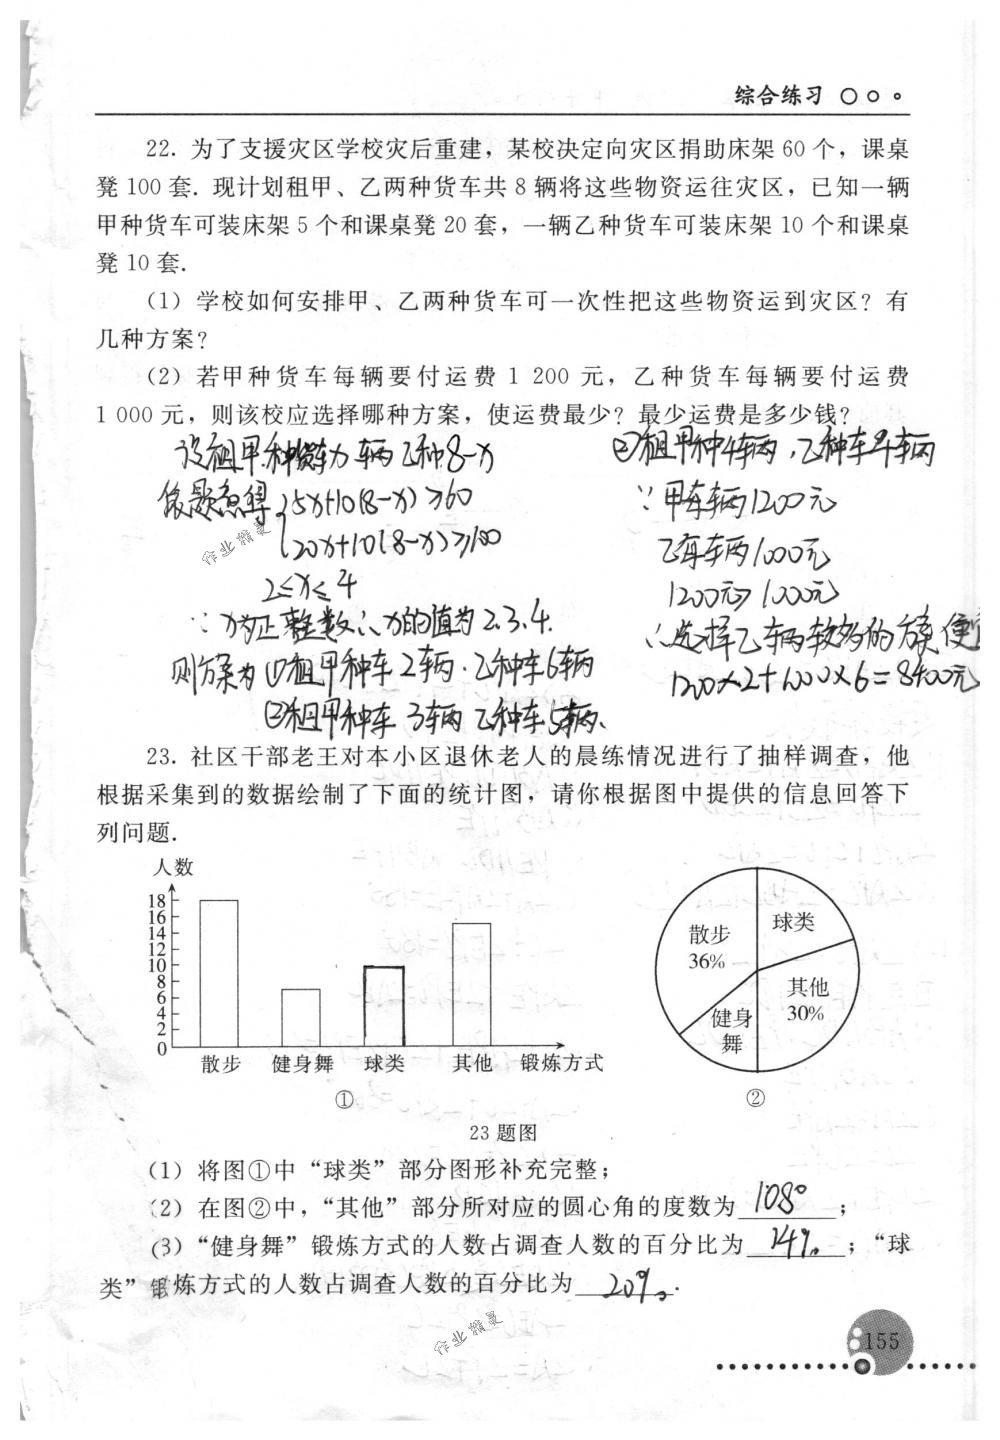 综合练习
22. 为了支援灾区学校灾后重建，某校决定向灾区捐助床架 60 个，课桌
凳 100 套. 现计划租甲、乙两种货车共 8 辆将这些物资运往灾区，已知一辆
甲种货车可装床架 5 个和课桌凳 20 套，一辆乙种货车可装床架 10 个和课桌
凳 10 套.
(1) 学校如何安排甲、乙两种货车可一次性把这些物资运到灾区？有
几种方案？
(2) 若甲种货车每辆要付运费 1 200 元，乙种货车每辆要付运费
1 000 元，则该校应选择哪种方案，使运费最少？最少运费是多少钱？
设租甲种货车x辆 乙种8-x
依题意得 5x+10(8-x)≥60
20x+10(8-x)≥100
2≤x≤4
∵x为正整数∴x的值为2.3.4.
则方案为①租甲种车2辆.乙种车6辆
②租甲种车 3辆 乙种车5辆、
③租甲种4车辆，乙种车4车辆
∵甲车辆1200元
乙车车辆1000元
1200元>1000元
∴选择乙车辆较多的方案便宜
1200×2+1000×6=8400元
23. 社区干部老王对本小区退休老人的晨练情况进行了抽样调查，他
根据采集到的数据绘制了下面的统计图，请你根据图中提供的信息回答下
列问题.
人数
18
16
14
12
10
8
6
4
2
0
散步 健身舞 球类 其他 锻炼方式
①
散步
36%
球类
其他
30%
健身
舞
②
23 题图
(1) 将图①中“球类”部分图形补充完整；
(2) 在图②中，“其他”部分所对应的圆心角的度数为 108° ；
(3) “健身舞”锻炼方式的人数占调查人数的百分比为 14% ；“球
类”锻炼方式的人数占调查人数的百分比为 20% .
作业精灵
作业精灵
155